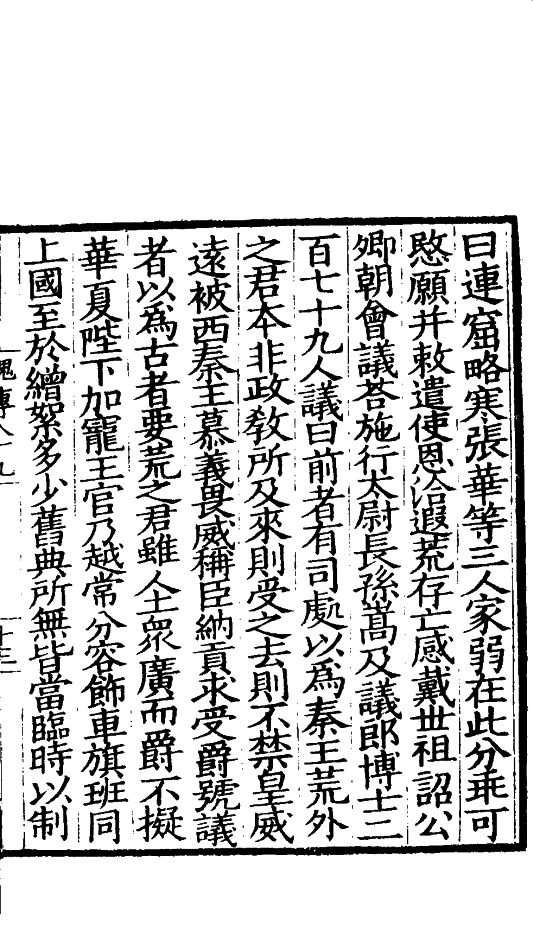 曰連窟略寒張華等三人家弱在此分乖可
愍願并敕遣使恩洽遐荒存亡感戴世祖詔公
卿朝會議荅施行太尉長孫嵩及議郎博士二
百七十九人議曰前者有司處以爲秦王荒外
之君本非政敎所及來則受之去則不禁皇威
遠被西秦王慕義畏威稱臣納貢求受爵號議
者以爲古者要荒之君雖人土衆廣而爵不擬
華夏陛下加寵王官乃越常分容飾車旗班同
上國至於繒絮多少舊典所無皆當臨時以制